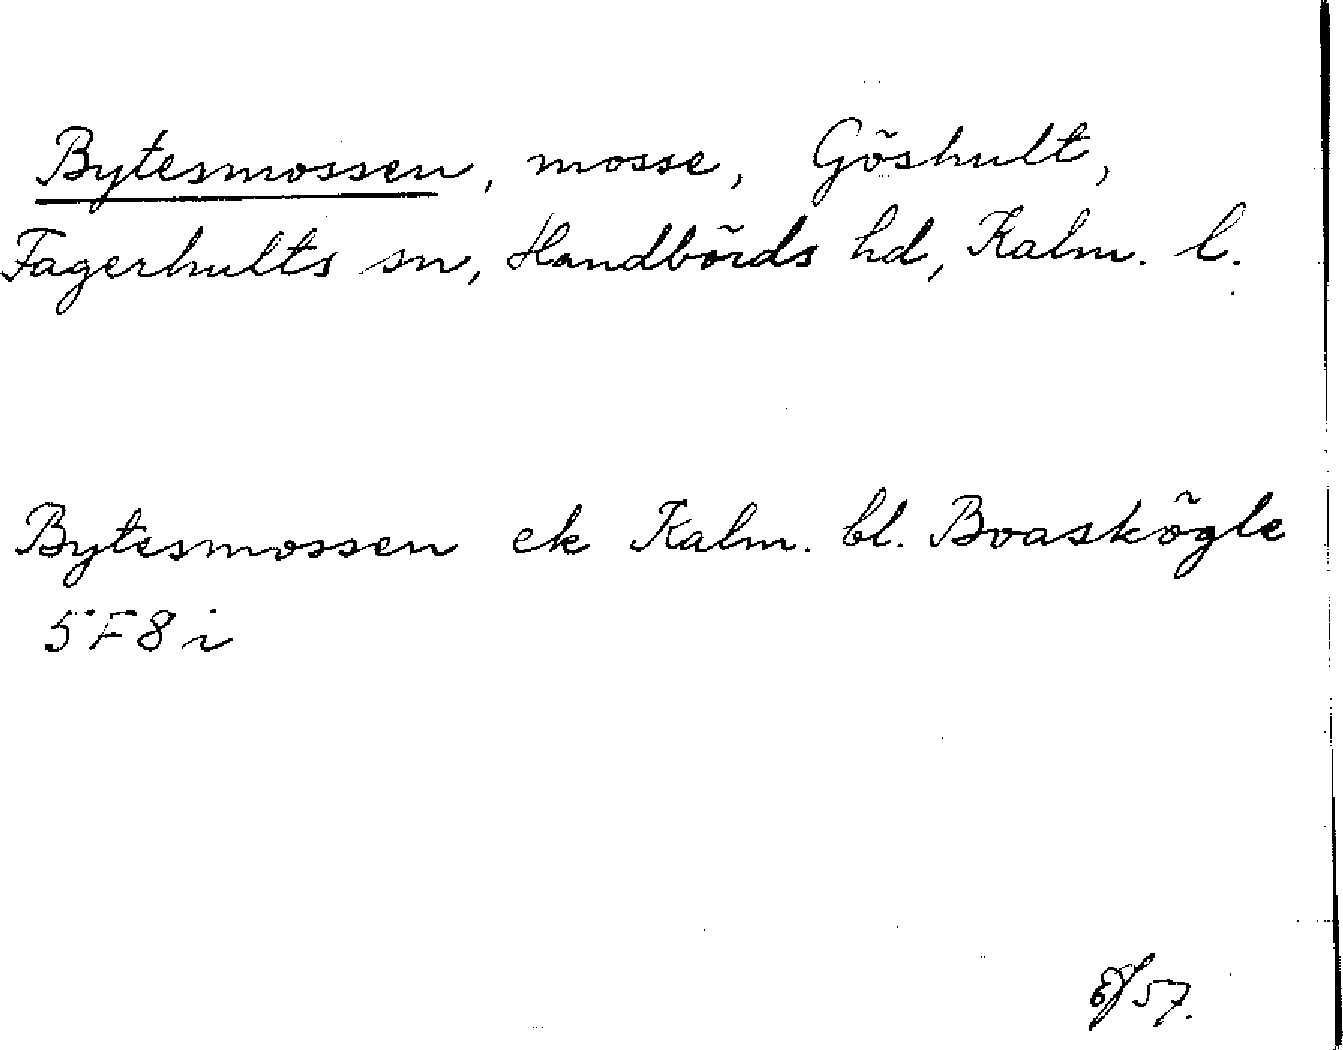 Bytesmossen, mosse, Göshult,
Fagerhults sn, Handbörds hd, Kalm. l.
Bytesmossen ek Kalm. bl. Boaskögle
5 F 8 i
57.